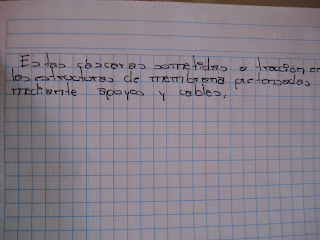 Estas cáscaras sometidas a tracion en
las estructuras de membrana pretensadas
mediante apoyos y cables.